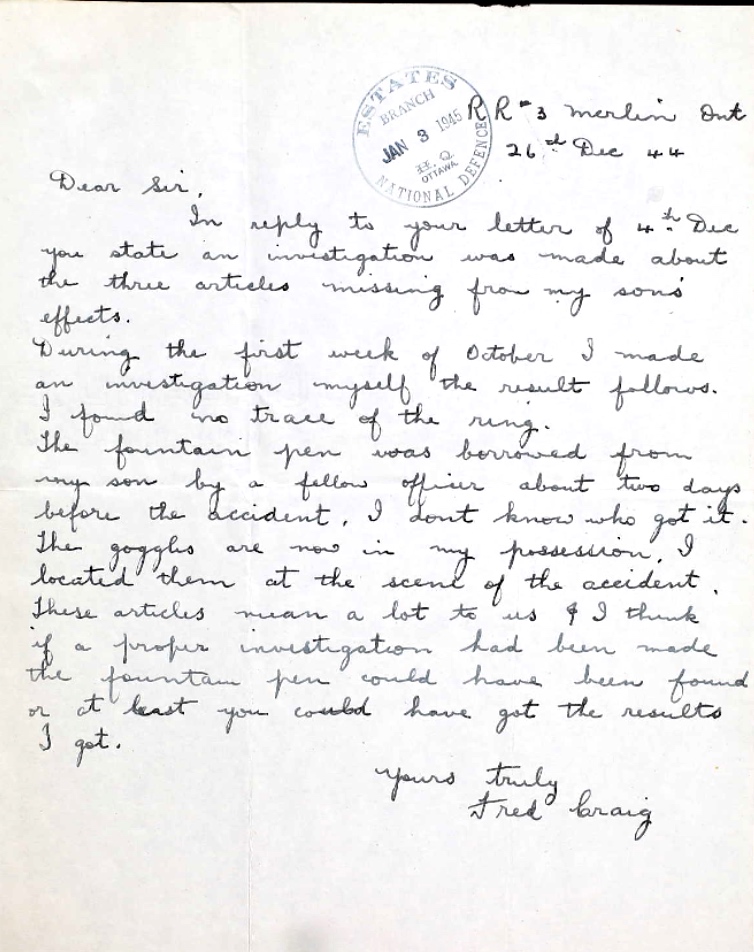 ESTATES
BRANCH
JAN 3 1945
H. Q.
OTTAWA
NATIONAL DEFENCE
R R #3 Merlin Ont
26th Dec 44
Dear Sir,
In reply to your letter of 4th Dec
you state an investigation was made about
the three articles missing from my sons'
effects.
During the first week of October I made
an investigation myself the result follows.
I found no trace of the ring.
The fountain pen was borrowed from
my son by a fellow officer about two days
before the accident, I dont know who got it.
The goggles are now in my possession, I
located them at the scene of the accident.
These articles mean a lot to us & I think
if a proper investigation had been made
the fountain pen could have been found
or at least you could have got the results
I got.
Yours truly
Fred Craig